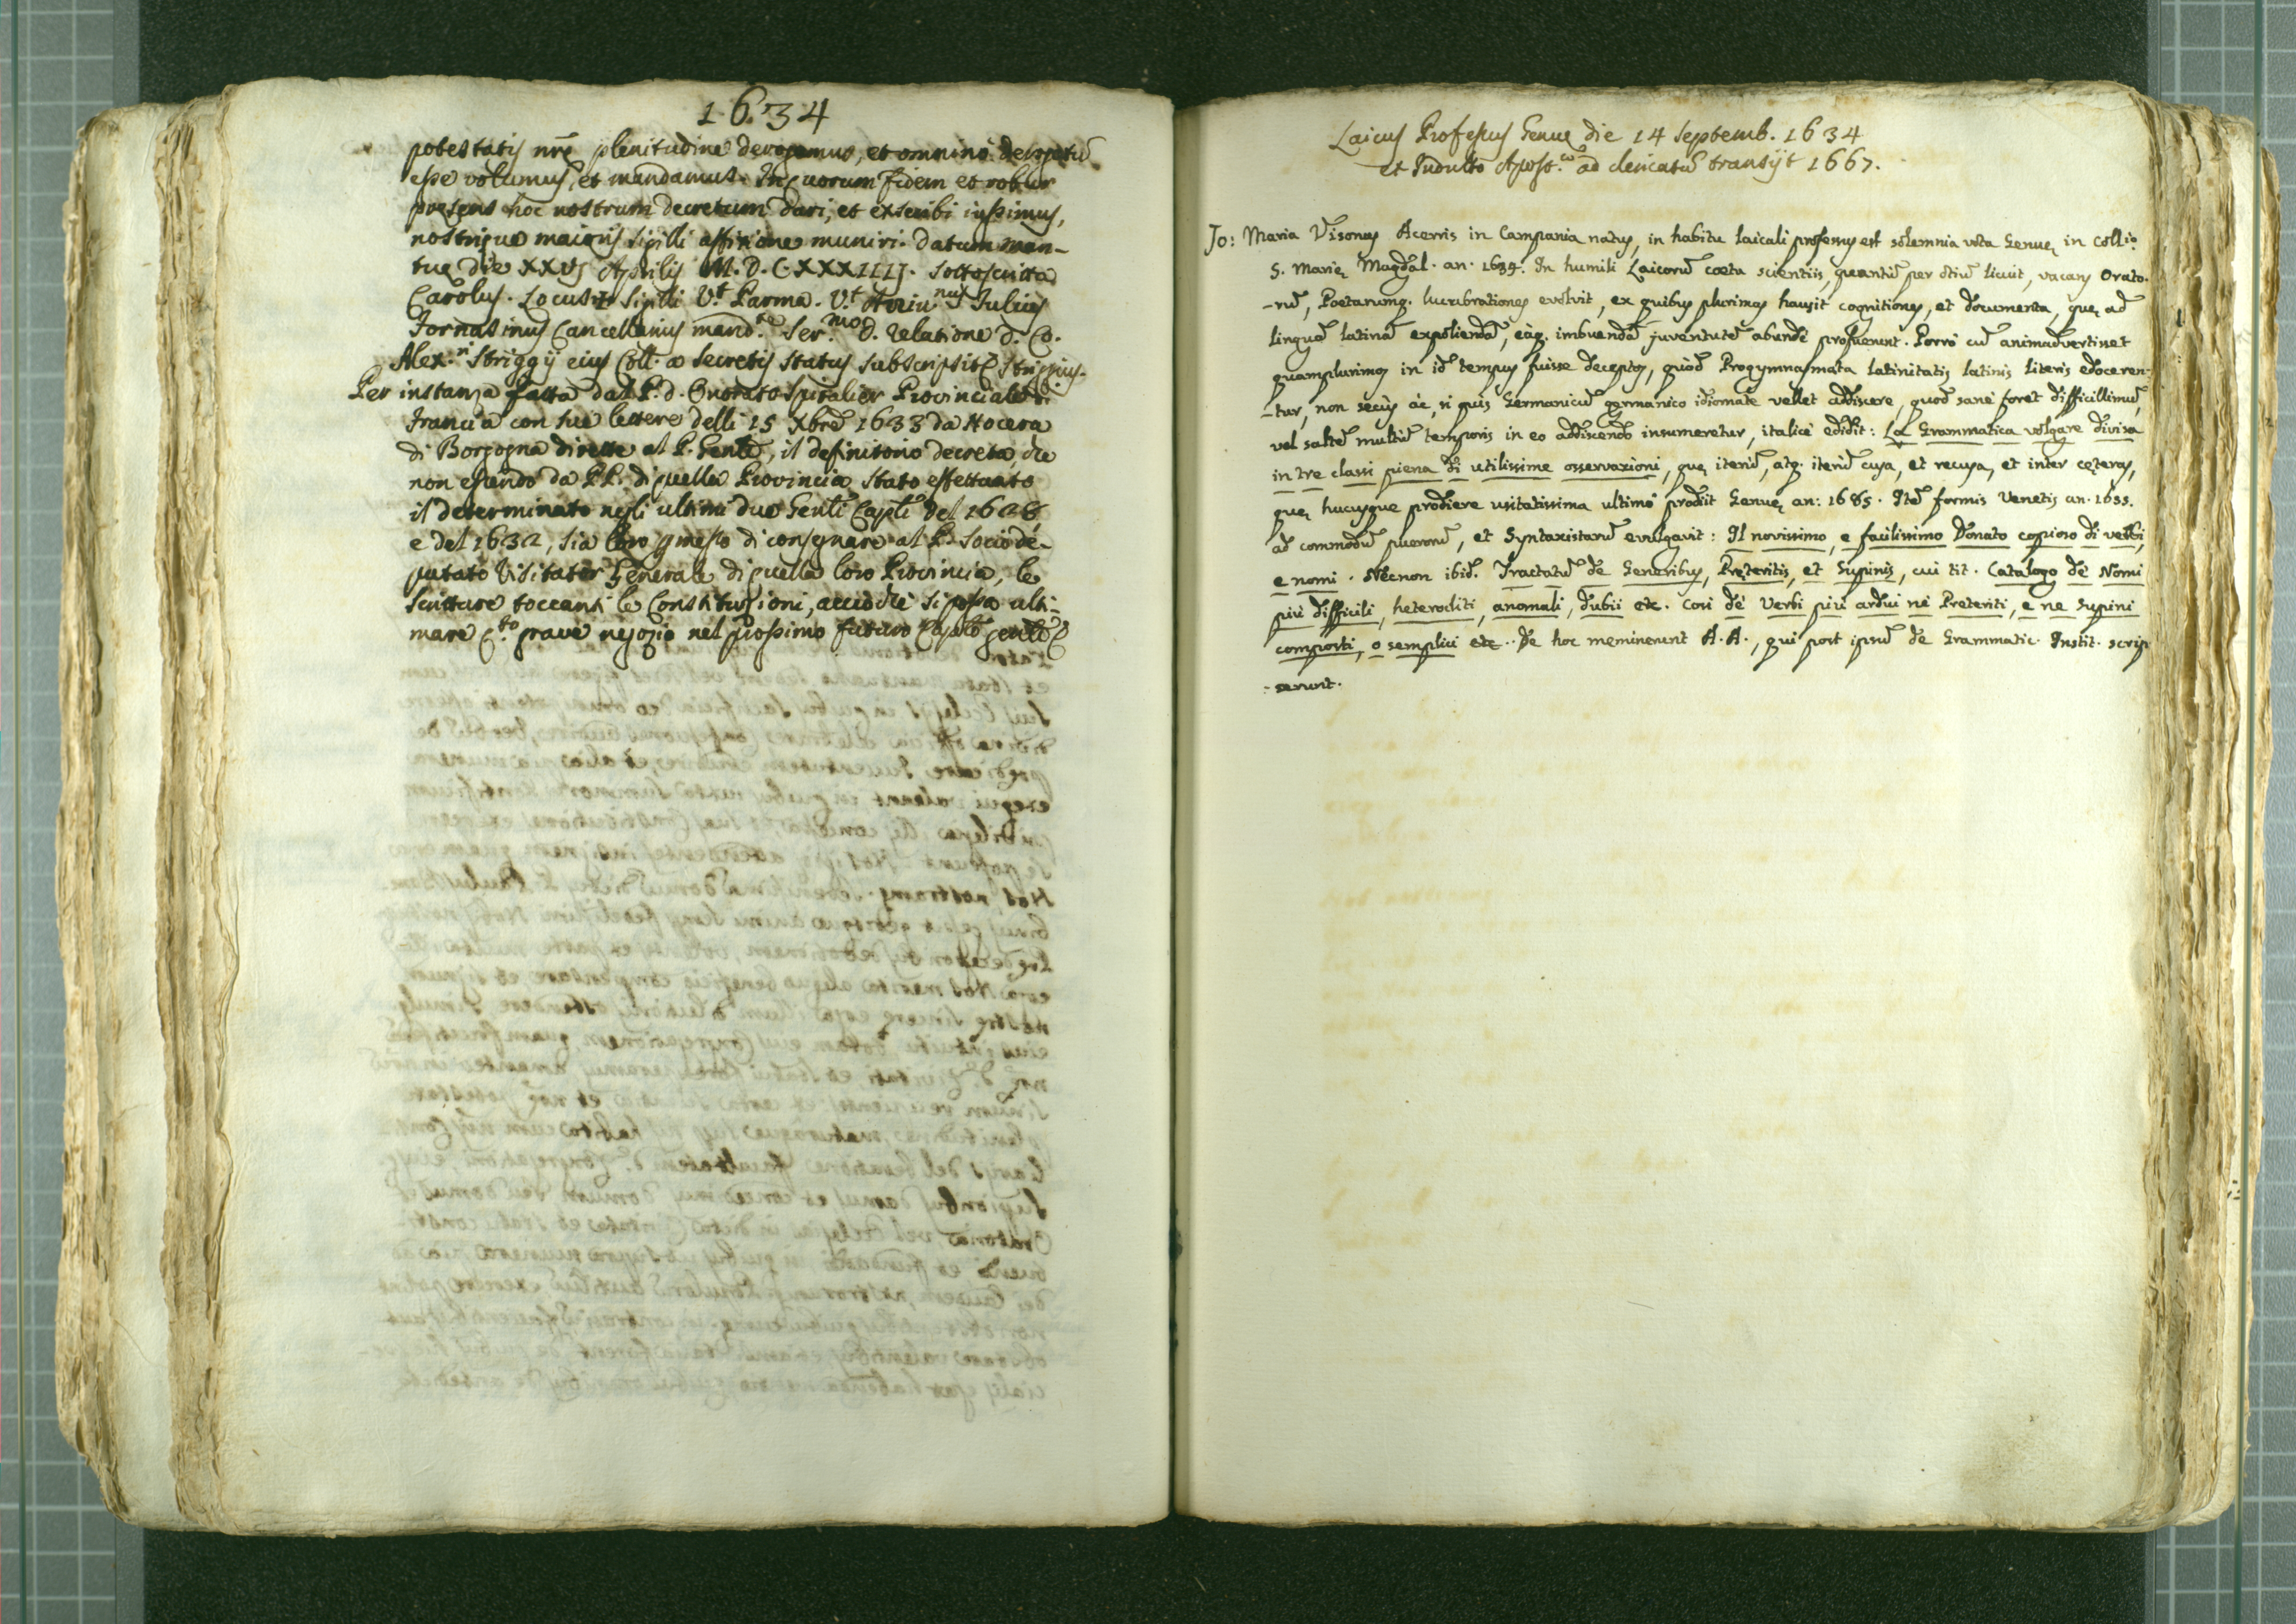 1634
potestatis nrē plenitudine derogamus, et omnino derogatū
esse volumus, et mandamus. In quorum fidem et robur
presens hoc nostrum decretum dari, et exscribi iussimus,
nostrique maioris sigilli affixione muniri. Datum Man-
tuę die XXVJ Aprilis M. D. C. XXXIIIJ. sottoscritta
Carolus. Locus + sigilli V.t Parma. V.t Julius
Cancellarius mand.te Ser.mo D. relatione D. Co.
Alex.ri Striggij eius Coll. a secretis status subscripsit Striggius.
Per instanza fatta dal P. d. Onorato Spitalier Provinciale di
Francia con sue lettere delli 15 Xbrē 1633 da Nocera
di Borgogna dirette al P. Genlē, il definitorio decreta, che
non essendo da PP. di quella Provincia stato effettuato
il determinato negli ultimi due Genli Capli del 1626
e del 1632, sia loro di consignare al P. socio de-
putato Visitator Generale di quella loro Provincia, le
scritture toccanti le Constitutioni, acciò che si possa ulti-
mare q.to grave negozio nel prossimo futuro Caplō genlē
Laicus Professus Genuę die 14 Septemb. 1634
et Indulto Apost.co ad clericatū transijt 1667.
Jo: Maria Visonus Acerris in Campania natus, in habitu laicali professus est solemnia vota Genuę in Coll.o
S. Marię Magdal. an. 1634. In humili Laicorū cœtu scientiis, quantū per otiū licuit, vacans Orato-
-rū, Poetarumq. lucubrationes evolvit, ex quibus plurimas hausit cognitiones, et documenta, quę ad
linguā latinā expoliendā, eāq. imbuendā juventutē abundè profuerunt. Porrò cū animadvertisset
quamplurimos in id tempus fuisse deceptos, quòd Progymnasmata latinitatis latinis literis edoceren-
-tur, non secùs ac, si quis Germanicū germanico idiomate vellet addiscere, quod sanè foret difficillimū,
vel saltē multū temporis in eo addiscendo insumeretur, italicè edidit: La Grammatica volgare divisa
in tre classi piena di utilissime osservazioni, quę iterū, atq. iterū cusa, et recusa, et inter cęteras,
quę hucusque prodiere usitatissima ultimò prodiit Genuę an: 1685. Itē formis Venetis an. 1655.
ad commodū puerorū, et Syntaxistarū evulgavit: Il novissimo, e facilissimo Donato copioso di verbi,
e nomi. Nècnon ibid. Tractatū de Generibus, Pręteritis, et Supinis, cui tit. Catalogo de' Nomi
più difficili, heterocliti, anomali, dubii etc. così de' Verbi più ardui ne' Preteriti, e ne Supini
composti, o semplici etc. De hoc meminerunt A.A., qui post ipsū de Grammatic. Instit. scrip
-serunt.